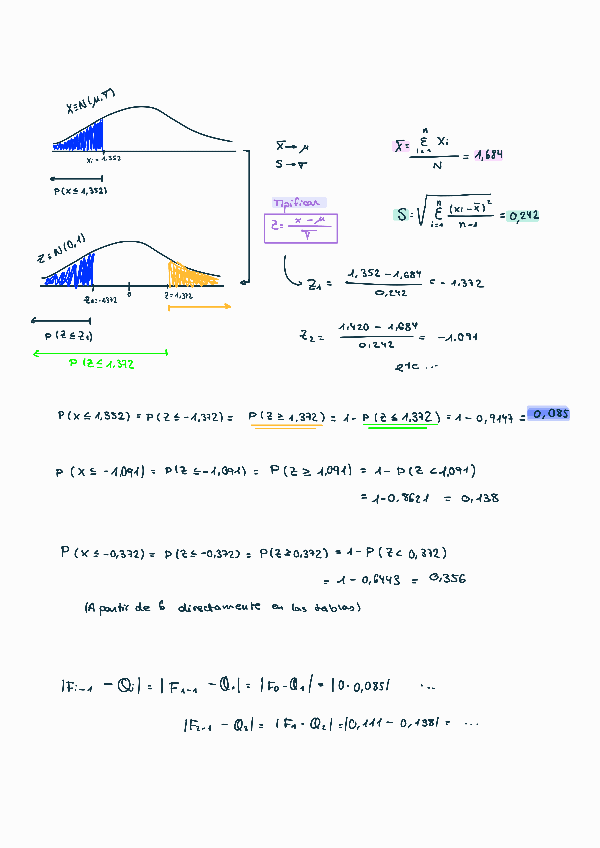 X≡N(μ,σ)
xi = 1,352
P(X≤ 1,352)
X̄ → μ
S → σ
X̄ = Σ(i=1 → n) Xi / N = 1,684
S = √( Σ(i=1 → n) (xi - x̄)² / n-1 ) = 0,242
Tipificar
Z = x - μ / σ
Z≡N(0,1)
Z1=-1372
0
Z=1,372
P(Z≤Z1)
P(Z≤1,372
Z1 = 1,352 - 1,684 / 0,242 = -1.372
Z2 = 1.420 - 1,684 / 0.242 = -1.091
etc...
P(X≤1,352) = P(Z≤-1,372) = P(Z≥1,372) = 1- P(Z≤1,372) = 1 - 0,9147 = 0,085
P(X≤-1,091) = P(Z≤-1,091) = P(Z≥1,091) = 1- P(Z<1,091)
= 1-0.8621 = 0,138
P(X≤-0,372) = P(Z≤-0,372) = P(Z≥0,372) = 1-P(Z< 0,372)
= 1 - 0,6443 = 0,356
(A partir de 6 directamente en las tablas)
|Fi-1 - Qi| = |F1-1 - Qi| = |F0-Q1| = |0-0,085| ...
|F2-1 - Q2| = |F1-Q2| = |0,111 - 0,138| = ...